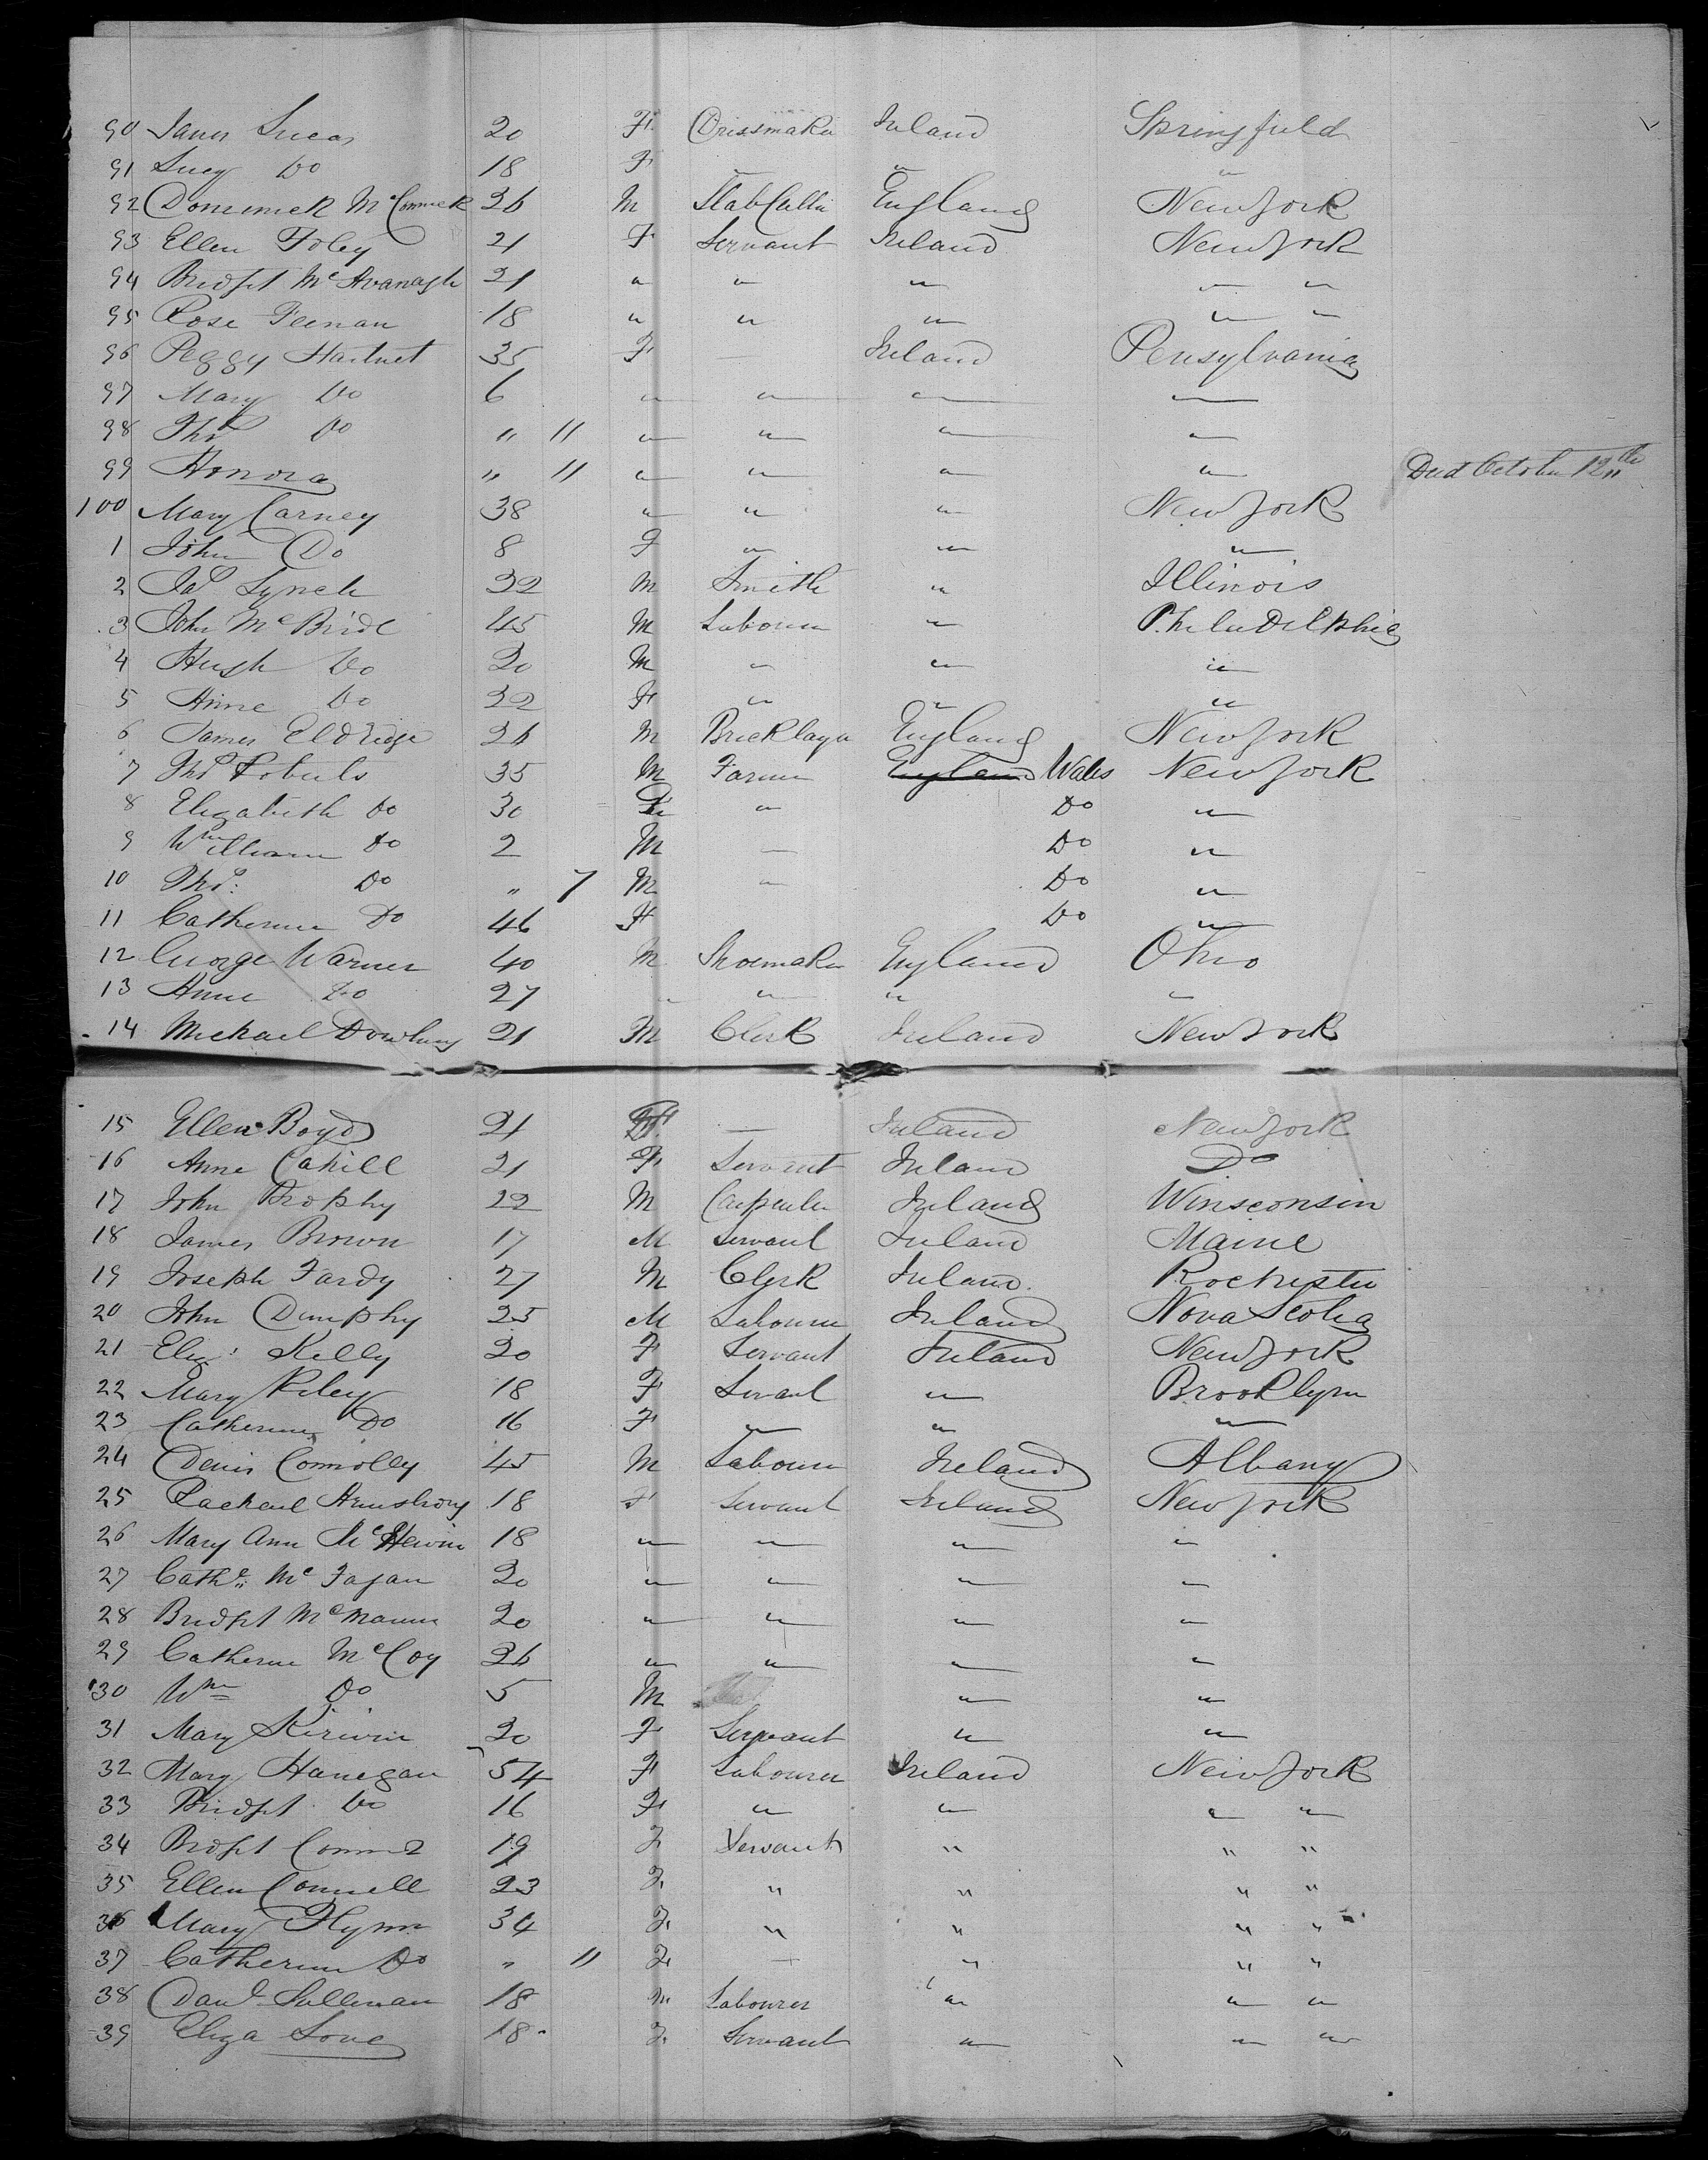 90 Janes Lucas 20 F. Dressmaker Ireland Springfield
91 Lucy Do 18 F " " "
92 Dominick McCormick 26 M England New York
93 Ellen Foley 21 F Servant Ireland New York
94 Bridget McAvanagh 21 " " " " "
95 Rose Feenan 18 " " " " "
96 Peggy Hartnet 35 F — Ireland Pensylvania
97 Mary Do 6 " " " "
98 Thos Do " 11 " " " "
99 Honora " 11 " " " " Died October 12th
100 Mary Carney 38 " " " New York
1 John Do 8 F " " "
2 Jas Lynch 32 M Smith " Illinois
3 John McBride 45 M Labourer " Philadelphia
4 Hugh Do 20 M " " "
5 Anne Do 22 F " " "
6 James Eldridge 26 M Bricklayer England New York
7 Thos Roberts 35 M Farmer England Wales New York
8 Elizabeth Do 30 F " Do "
9 William Do 2 M — Do "
10 Thos: Do " 7 M " Do "
11 Catherine Do 46 F Do "
12 George Warner 40 M Shoemaker England Ohio
13 Anne Do 27 " " " "
14 Michael Dowling 21 M Clerk Ireland New York
15 Ellen Boyd 21 F. — Ireland New York
16 Anne Cahill 21 F Servant Ireland Do
17 John Brophy 22 M Carpenter Ireland Winsconsin
18 James Brown 17 M Servant Ireland Maine
19 Joseph Fardy 27 M Clerk Ireland. Rochester
20 John Dunphy 25 M Labourer Ireland Nova Scotia
21 Eliz: Kelly 20 F Servant Ireland New York
22 Mary Riley 18 F Servant " Brooklyn
23 Catherine Do 16 F " " "
24 Denis Connolly 45 M Labourer Ireland Albany
25 Racheal Armstrong 18 F Servant Ireland New York
26 Mary Ann 18 " " " "
27 Cathe: Mc Fagan 20 " " " "
28 Bridget McManus 20 " " " "
29 Catherine McCoy 26 " " " "
130 Wm Do 5 M " "
31 Mary Kirwin 20 F Servant " "
32 Mary Hanegan 54 F Labourer Ireland New York
33 Bridget Do 16 F " " " "
34 Bridget 19 F Servant " " "
35 Ellen Connell 23 F. " " " "
36 Mary Flynn 34 F. " " " "
37 Catherine Do " 11 F. — " " "
38 Danl Sullivan 18 M Labourer " " "
39 Eliza Love 18 F. Servant " " "